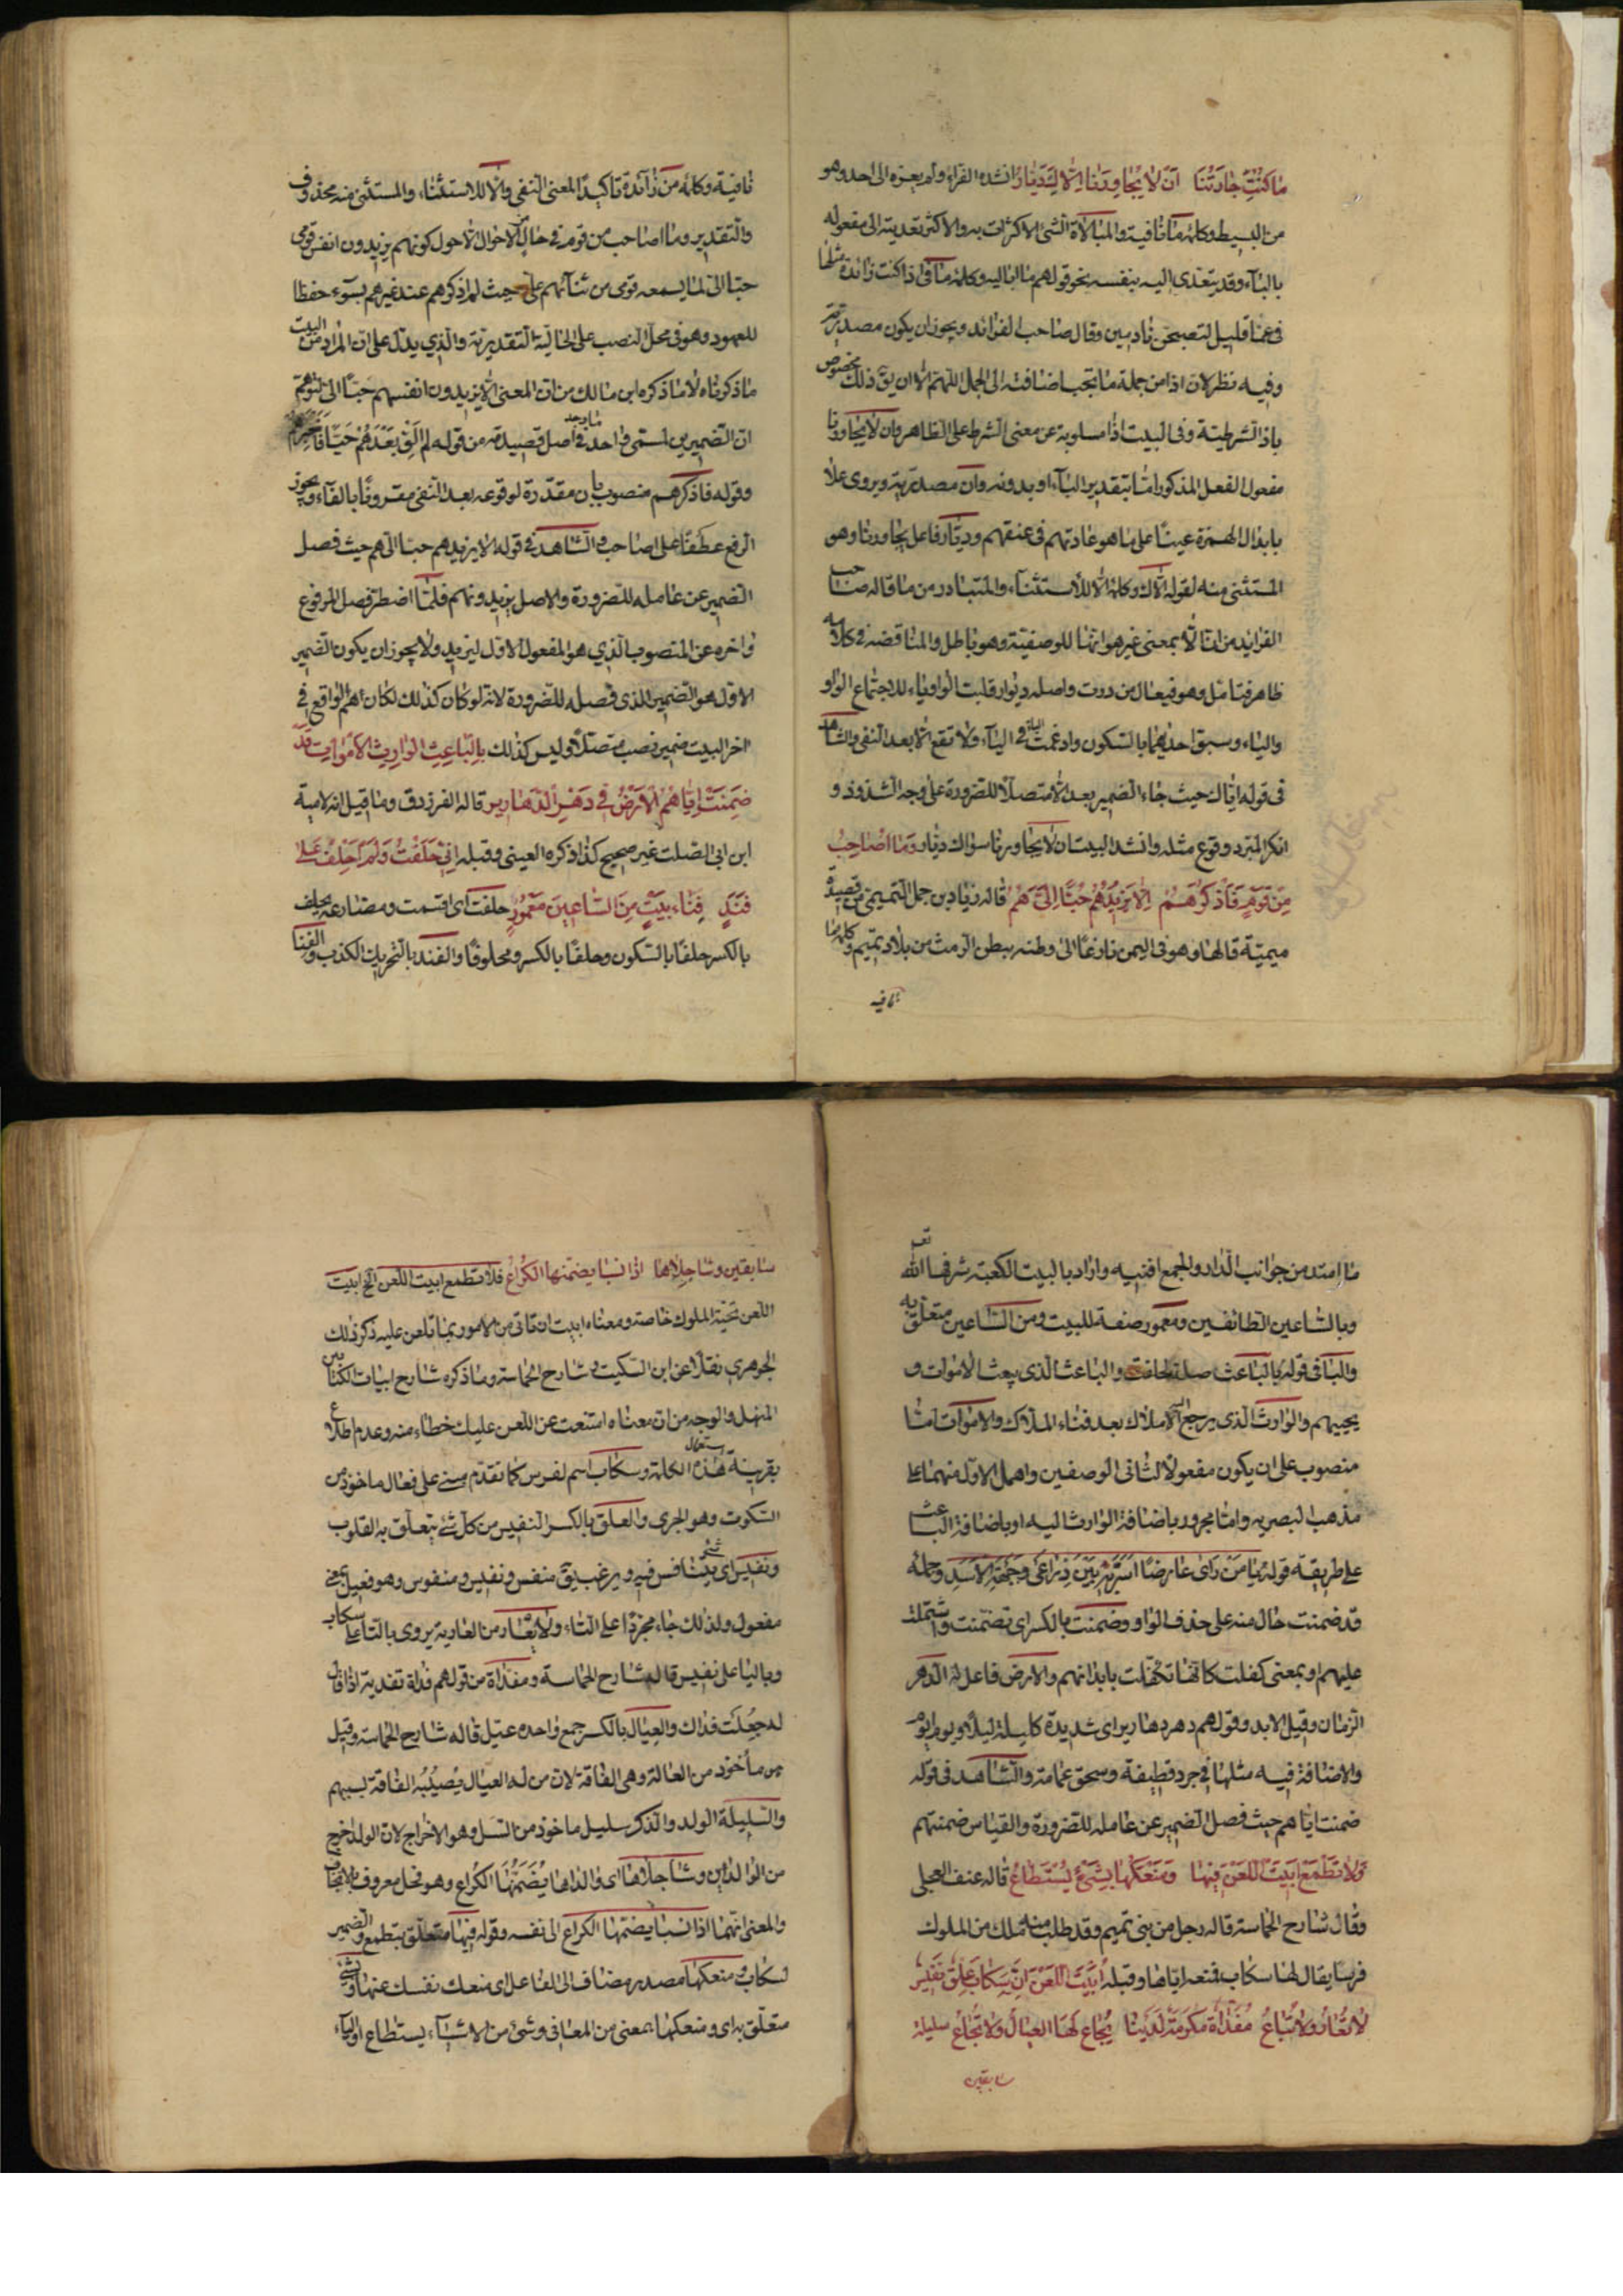 ما كنتِ جارتنا ان لا يجاورنا الّا كِ ديّار انشده الفراء ولم يعزه الى احد وهو
من البسيط وكلمة ما نافية والمبالاة بالشئ الاكتراث به والاكثر تعديته الى مفعوله
بالباء وقد يتعدى اليه بنفسه نحو قولهم ما اباليه وكلمة ما فى اذا ما كنت زائدة مثلها
فى عما قليل لتصبحن نادمين وقال صاحب الفرائد ويجوز ان يكون مصدرية
وفيه نظر لان اذا من جملة ما يجب اضافته الى الجمل اللهم الا ان يق ذلك مخصوص
باذا الشرطية وفى البيت اذا مسلوبة عن معنى الشرط على الظاهر وان لا يجاورنا
مفعول الفعل المذكور اما بتقدير الباء او بدونه وان مصدرية ويروى علا
بابدال الهمزة عينا على ما هو عادتهم فى عنقهم وديّار فاعل يجاورنا وهو
المستثنى منه لقوله الاك وكلمة الا للاستثناء والمتبادر من ما قاله صاحب
الفرايد من ان الا بمعنى غير هو انها للوصفية وهو باطل والمناقضة فى كلامه
ظاهر فتامل وهو فيعال من درت واصله ديوار قلبت الواو ياء للاجتماع الواو
والياء وسبق احديهما بالسكون وادغمت الياء فى الياء ولا تقع الا بعد النفى والشاهد
فى قوله اياك حيث جاء الضمير بعد الا متصلا للضرورة على وجه الشذوذ و
انكر المبرد وقوع مثله وانشد البيت ان لا يجاورنا سواك ديار وَمَا اُصَاحِبُ
مِن قَومٍ فَاَذكُرَهُم اِلّا يَزيدُهُم حُبّاً اِلَىَّ هُم قاله زياد بن حمل التميمى من قصيدة
ميمية قالها وهو فى اليمن نازعا الى وطنه ببطن الرمث من بلاد تميم وكلمة ما
نافيه
نافية وكلمة من زائدة تاكيدا لمعنى النفى والا للاستثناء والمستثنى منه محذوف
والتقدير وما اصاحب من قوم فى حال من الاحوال الا حول كونهم يزيدون انفس قومى
حبا الى لما يسمعه قومى من ثنائهم على حيث لم اذكرهم عند غيرهم بسوء حفظا
للعهود وهو فى محل النصب على الحالية التقديرية والذي يدل على ان المراد من البيت
ما ذكرناه لا ما ذكره ابن مالك من ان المعنى الا يزيدون انفسهم حبا الى لتوهم
ان الضميرين لمسمى واحد ما وجد فى اصل قصيدته من قوله لم اَلقَ بَعدَهُم حَيّاً فاَخبرهم
وقوله فاذكرهم منصوب بان مقدرة لوقوعه بعد النفى مقرونا بالفاء ويجوز
الرفع عطفا على اصاحب والشاهد فى قوله الا يزيدهم حبا الى هم حيث فصل
الضمير عن عامله للضرورة والاصل يزيدونهم فلما اضطر فصل المرفوع
واخره عن المنصوب الذي هو المفعول الاول ليزيد ولا يجوز ان يكون الضمير
الاول هو الضمير الذى فصله للضرورة لانه لو كان كذلك لكان هم الواقع فى
اخر البيت ضمير نصب متصلا وليس كذلك بِالبَاعِثِ الوَارِثِ الاَموَاتَ قَد
ضَمِنَت اِيّاهُمُ الاَرضُ فى دَهرِ الدَّهَارير قاله الفرزدق وما قيل انه لامية
ابن ابى الصلت غير صحيح كذا ذكره العينى وقبله اِنّى حَلَفتُ وَلَم اَحلِف عَلى
فَنَدٍ فِنَاءِ بَيتٍ مِنَ السّاعِينَ مَعمُورِ حلفت اى اقسمت ومضارعه يحلف
بالكسر حلفا بالسكون وحلفا بالكسر ومحلوفا والفند بالتحريك الكذب والفنا
ما امتد من جوانب الدار والجمع افنيه واراد بالبيت الكعبة شرفها الله تعـ
وبالساعين الطائفين ومعمور صفة للبيت ومن الساعين متعلق به
والباء فى قوله بالباعث صلة لحلفت والباعث الذى يبعث الاموات و
يحييهم والوارث الذى يرجع اليه الاملاك بعد فناء الملاك والاموات اما
منصوب على ان يكون مفعولا لثانى الوصفين واهمل الاول منهما على
مذهب البصريه واما مجرور باضافة الوارث اليه او باضافة الباعث
على طريقة قوله يَا مَن رَأى عَارِضاً اُسَرُّ بِهِ بَينَ ذِرَاعَى وَجَبهَةِ الاَسَدِ وجملة
قد ضمنت حال منه على حذف الواو وضمنت بالكسر اى تضمنت واشتملت
عليهم او بمعنى كفلت كانها تكفلت بابدانهم والارض فاعل له الدهر
الزمان وقيل الابد وقولهم دهر دهارير اى شديدة كليلة ليلاء ويوم ايوم
والاضافة فيه مثلها فى جرد قطيفة وسحق عمامة والشاهد فى قوله
ضمنت اياهم حيث فصل الضمير عن عامله للضرورة والقياس ضمنتهم
وَلا تَطمَع اَبَيتَ اللَّعنَ فِيهَا وَمَنعُكَهَا بِشَئٍ يُستَطَاعُ قاله عنف العجلى
وقال شارح الحماسة قاله رجل من بنى تميم وقد طلب منه ملك من الملوك
فرسا يقال لها سكاب فمنعه اياها وقبله اَبَيتَ اللَّعنَ اِنَّ سَكَابَ عِلقٌ نَفِيسٌ
لا تُعَارُ وَلا تُبَاعُ مُفَدّاةٌ مَكرَمَةٌ لَدَينَا يُجَاعُ لَهَا العِيَالُ وَلا تُجَاعُ سليلة
سابقين
سابقين وشاجلاها اذا نسبا يضمنها الكراع فلا تطمع ابيت اللعن الخ ابيت
اللعن تحية الملوك خاصة ومعناه ابيت ان تاتى من الامور بما تلعن عليه ذكر ذلك
الجوهرى نقلا عن ابن السكيت وشارح الحماسة وما ذكره شارح ابيات الكتابين
المنهل والوجه من ان معناه امتنعت عن اللعن عليك خطاء منه وعدم اطلاع
بقرينة استعمال هذه الكلمة وسكاب اسم لفرس كما تقدم مبنى على فعال ماخوذ من
السكوت وهو الجرى والعلق بالكسر النفيس من كل شئ يتعلق به القلوب
ونفيس اى شئ يتنافس فيه ويرغب يق منفس ونفيس ومنفوس وهو فعيل بمعنى
مفعول ولذلك جاء مجردا على التاء ولا تعار من العارية يروى بالتاء على سكاب
وباليا على نفيس قاله شارح الحماسة ومفداة من قولهم فداة تفدية اذا قال
له جعلت فداك والعيال بالكسر جمع واحده عيل قاله شارح الحماسة وقيل
هو ماخوذ من العالة وهى الفاقة لان من له العيال يصيبه الفاقة بسببهم
والسليلة الولد والذكر سليل ماخوذ من السل وهو الاخراج لان الولد اخرج
من الوالدين وشاجلاها اى والداها يُضَمّنُها الكراع وهو فحل معروف بالانجاب
والمعنى انهما اذا نسبا يضمنها الكراع الى نفسه وقوله فيها متعلق بتطمع والضمير
لسكاب ومنعكها مصدر مضاف الى الفاعل اى منعك نفسك عنها وبشئ
متعلق به اى ومنعكها بمعنى من المعانى وشئ من الاشياء يستطاع او الباء